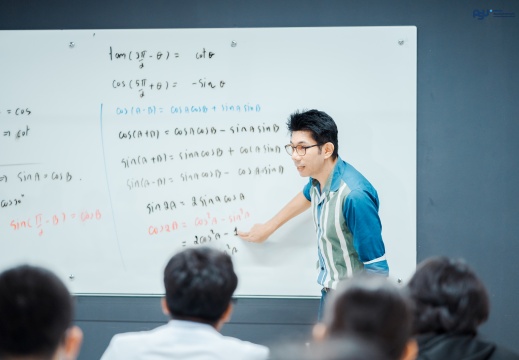 tan(3π/2 - θ) = cot θ
cos(5π/2 + θ) = -sin θ
cos(A-B) = cosAcosB + sinAsinB
cos(A+B) = cosAcosB - sinAsinB
sin(A+B) = sinAcosB + cosAsinB
sin(A-B) = sinAcosB - cosAsinB
sin2A = 2sinAcosA
cos2A = cos²A - sin²A
= 2cos²A - 1
= cos
⇒ cot
⇒ sinA = cosB
cos
sin(π/2 - θ) = cosθ